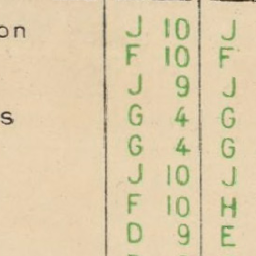 on J 10 J
F 10 F
J 9 J
s G 4 G
G 4 G
J 10 J
F 10 H
D 9 E